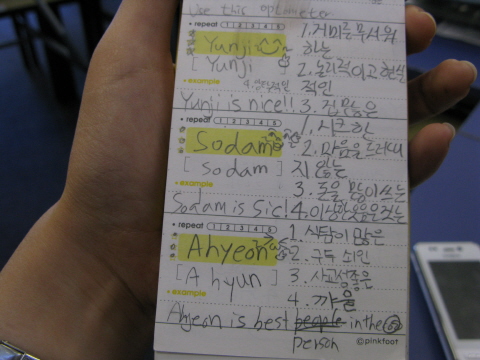 Use this optimeter
• repeat 1 2 3 4 5
Yunji
[ Yunji ]
1. 거미를 무서워
하는
2. 노력적이고 현실
적인
• example
Yunji is nice!!
3. 겁 많은
• repeat 1 2 3 4 5
Sodam
[ sodam ]
1. 시크한
2. 마음을 드러내
지 않는
3. 돈을 많이 쓰는
• example
Sodam is Sic!
4.
• repeat 1 2 3 4 5
Ahyeon
[ A hyun ]
1. 식탐이 많은
2. 구두쇠인
3. 사고성 좋은
4.
• example
Ahyeon is best people in the
person
©pinkfoot